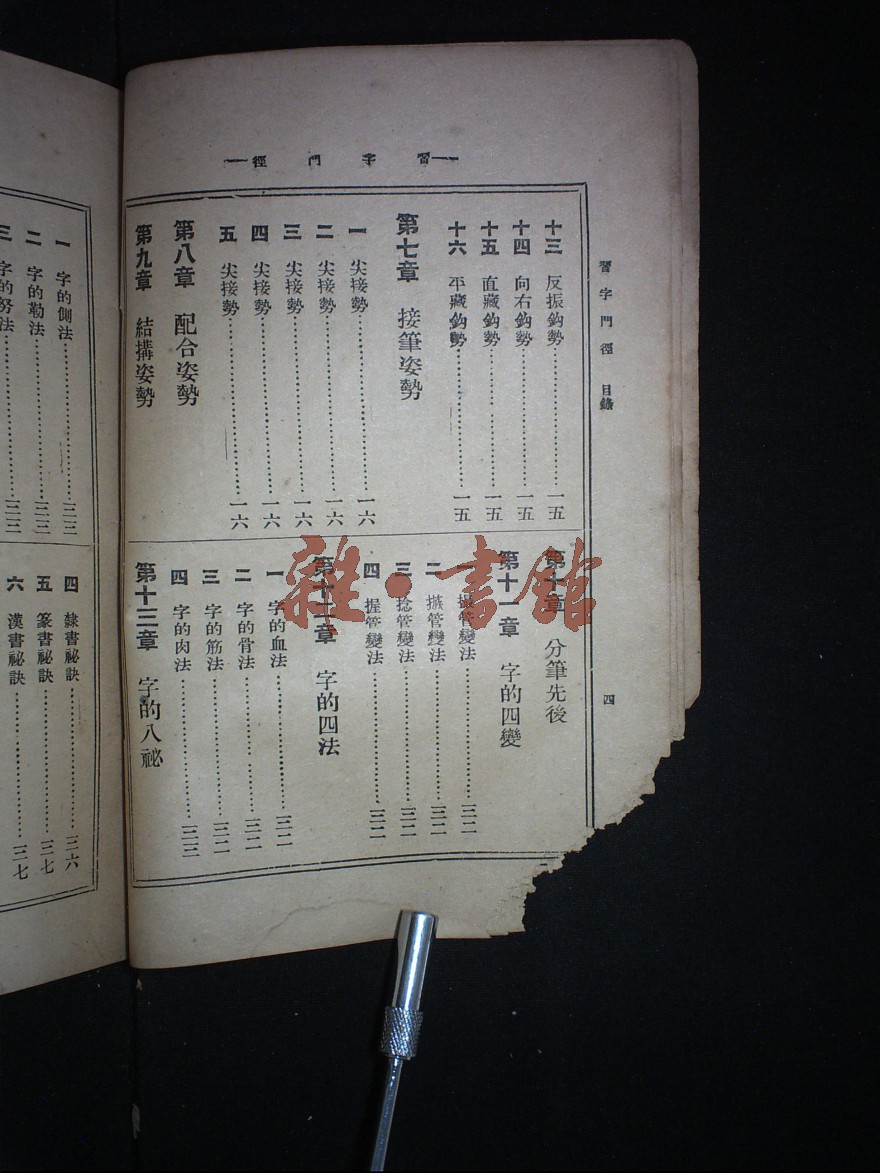 習字門徑
習字門徑 目錄
四
十三 反振鈎勢 一五
十四 向右鈎勢 一五
十五 直藏鈎勢 一五
十六 平藏鈎勢 一五
第七章 接筆姿勢
一 尖接勢 一六
二 尖接勢 一六
三 尖接勢 一六
四 尖接勢 一六
五 尖接勢 一六
第八章 配合姿勢
第九章 結構姿勢
第十章 分筆先後
第十一章 字的四變
一 撮管變法 三二
二 撚管變法 三二
三 捻管變法 三二
四 握管變法 三二
第十二章 字的四法
一 字的血法 三二
二 字的骨法 三二
三 字的筋法 三二
四 字的肉法 三三
第十三章 字的八祕
一 字的側法 三三
二 字的勒法 三三
三 字的努法 三三
四 隸書祕訣 三六
五 篆書祕訣 三七
六 漢書祕訣 三七
雜·書館